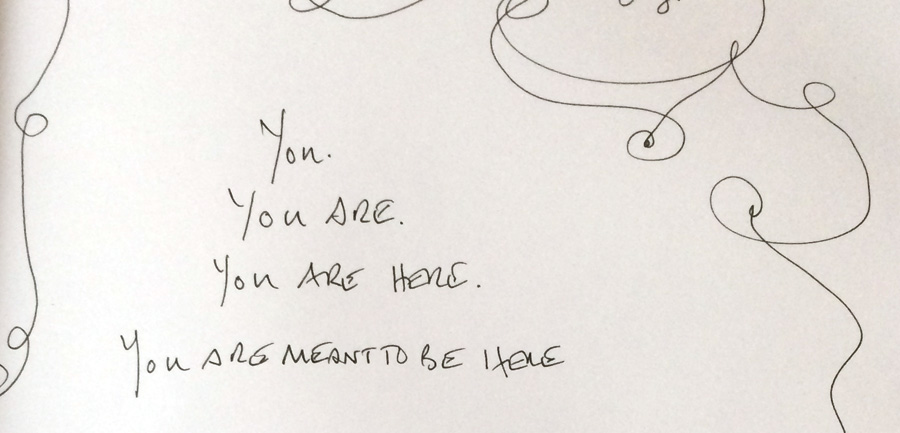 You.
You ARE.
You ARE HERE.
You ARE MEANT TO BE HERE